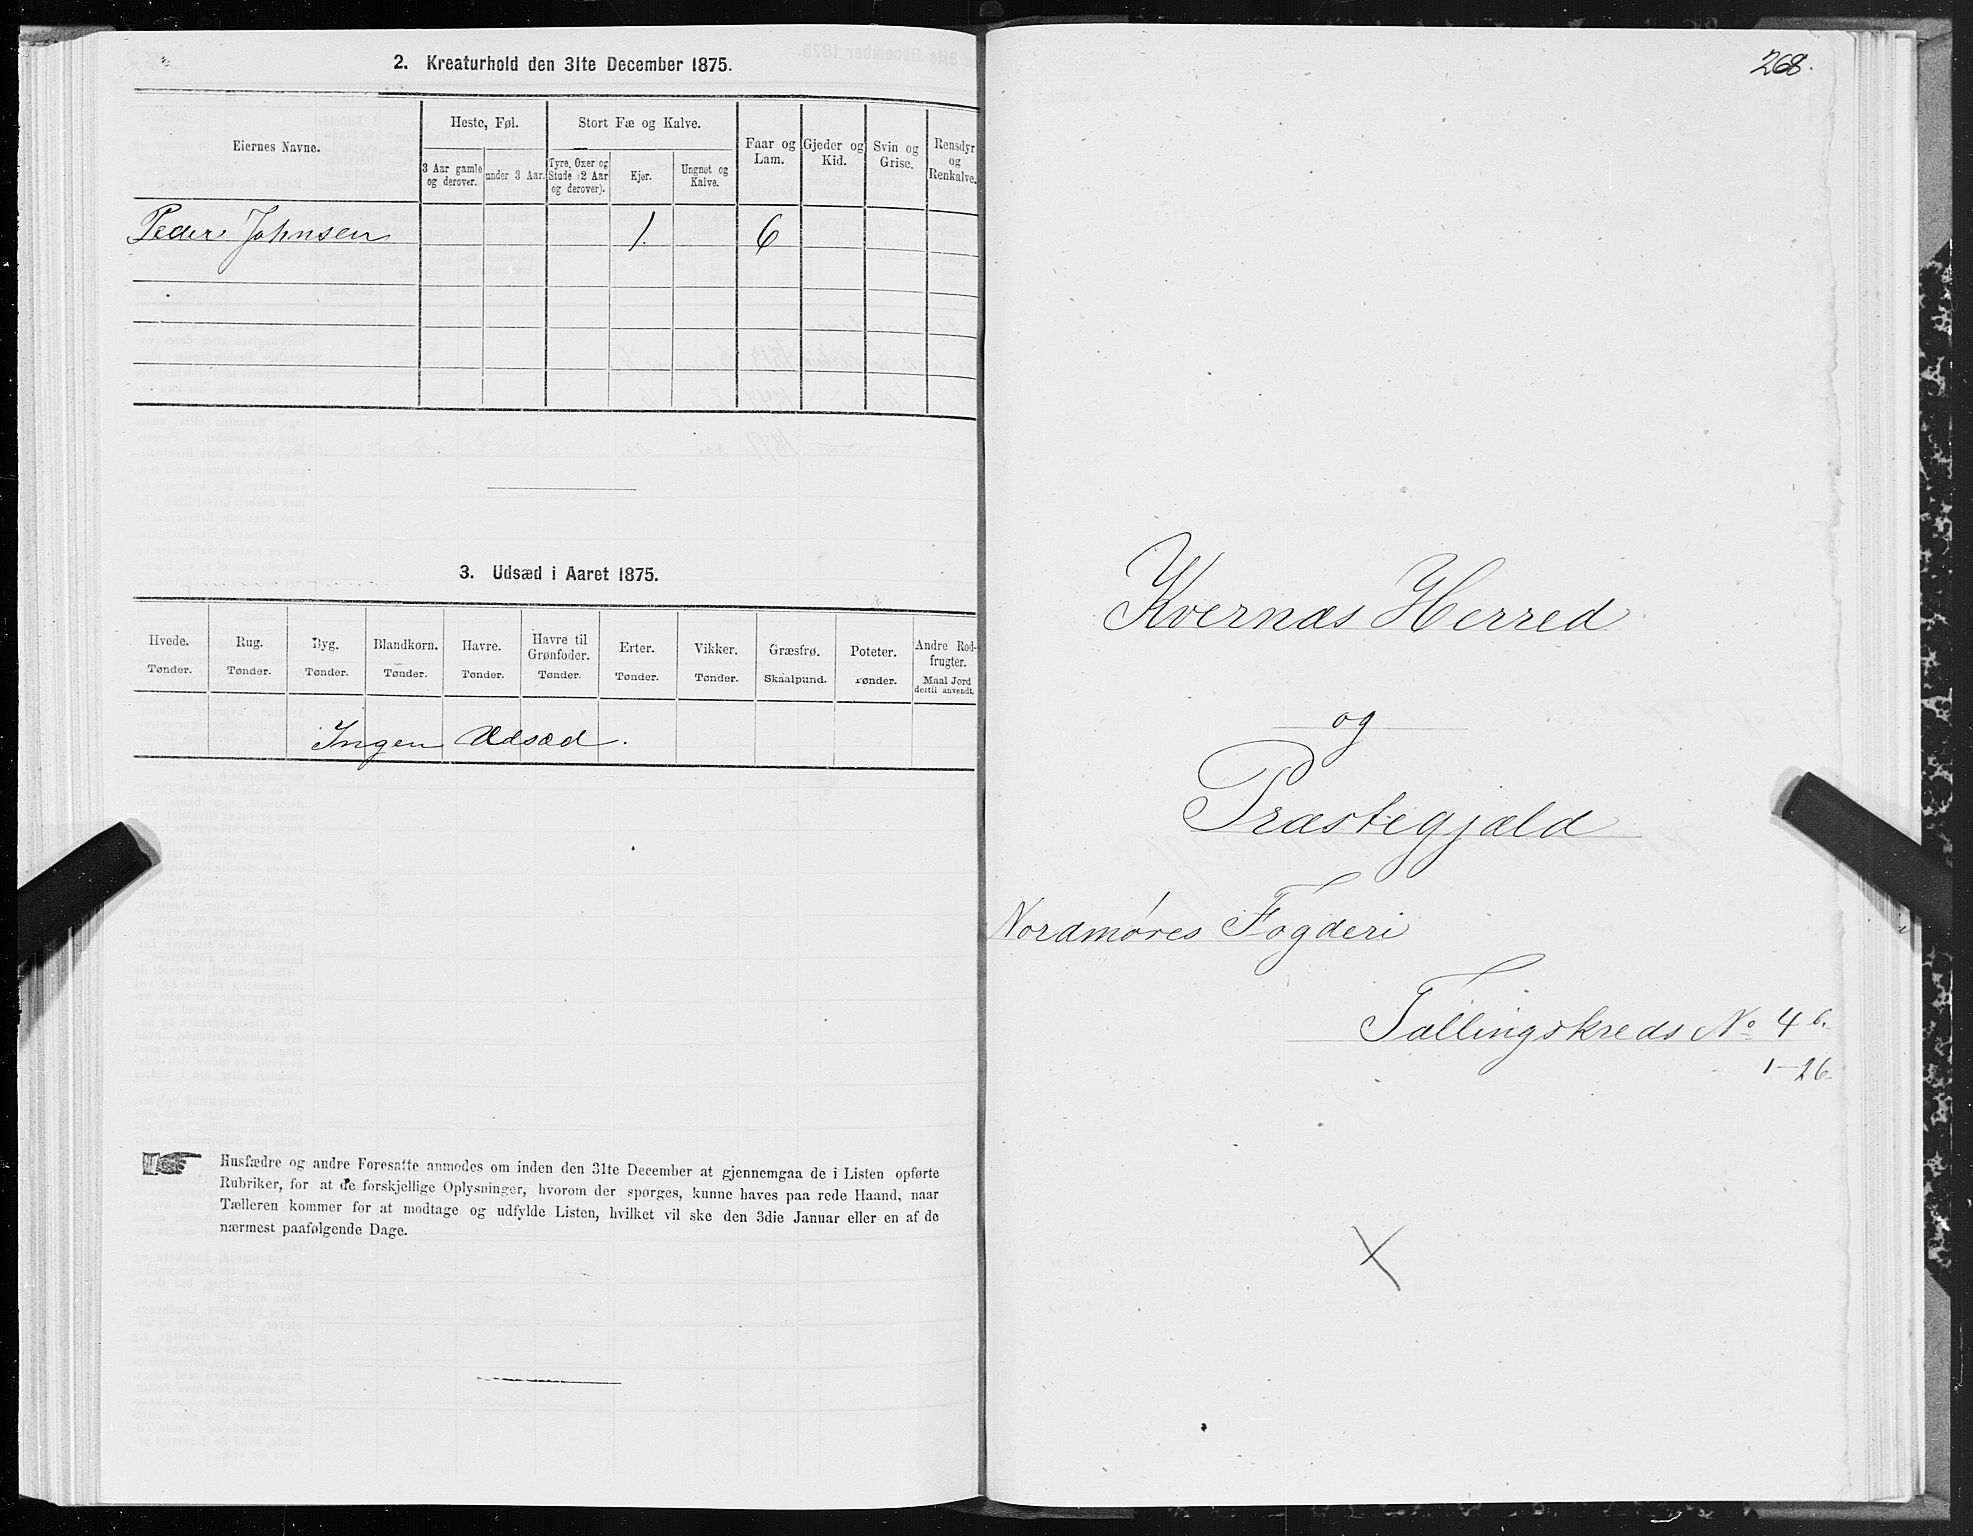 2. Kreaturhold den 31te December 1875.
Eiernes Navne.
Heste, Føl.
Stort Fæ og Kalve.
Faar og Lam.
Gjeder og Kid.
Svin og Grise.
Rensdyr og Renkalve.
3 Aar gamle og derover.
under 3 Aar.
Tyre, Oxer og Stude (2 Aar og derover).
Kjør.
Ungnøt og Kalve.
Peder Johnsen 1. 6
3. Udsæd i Aaret 1875.
Hvede. Rug. Byg. Blandkorn. Havre. Havre til Grønfoder. Erter. Vikker. Græsfrø. Poteter. Andre Rodfrugter.
Tønder. Tønder. Tønder. Tønder. Tønder. Tønder. Tønder. Tønder. Skaalpund. Tønder. Maal Jord dertil anvendt.
Ingen Udsæd.
Husfædre og andre Foresatte anmodes om inden den 31te December at gjennemgaa de i Listen opførte
Rubriker, for at de forskjellige Oplysninger, hvorom der spørges, kunne haves paa rede Haand, naar
Tælleren kommer for at modtage og udfylde Listen, hvilket vil ske den 3die Januar eller en af de
nærmest paafølgende Dage.
268.
Kvernæs Herred
og
Præstegjæld
Nordmøres Fogderi
Tællingskreds No 4 b.
1-26.